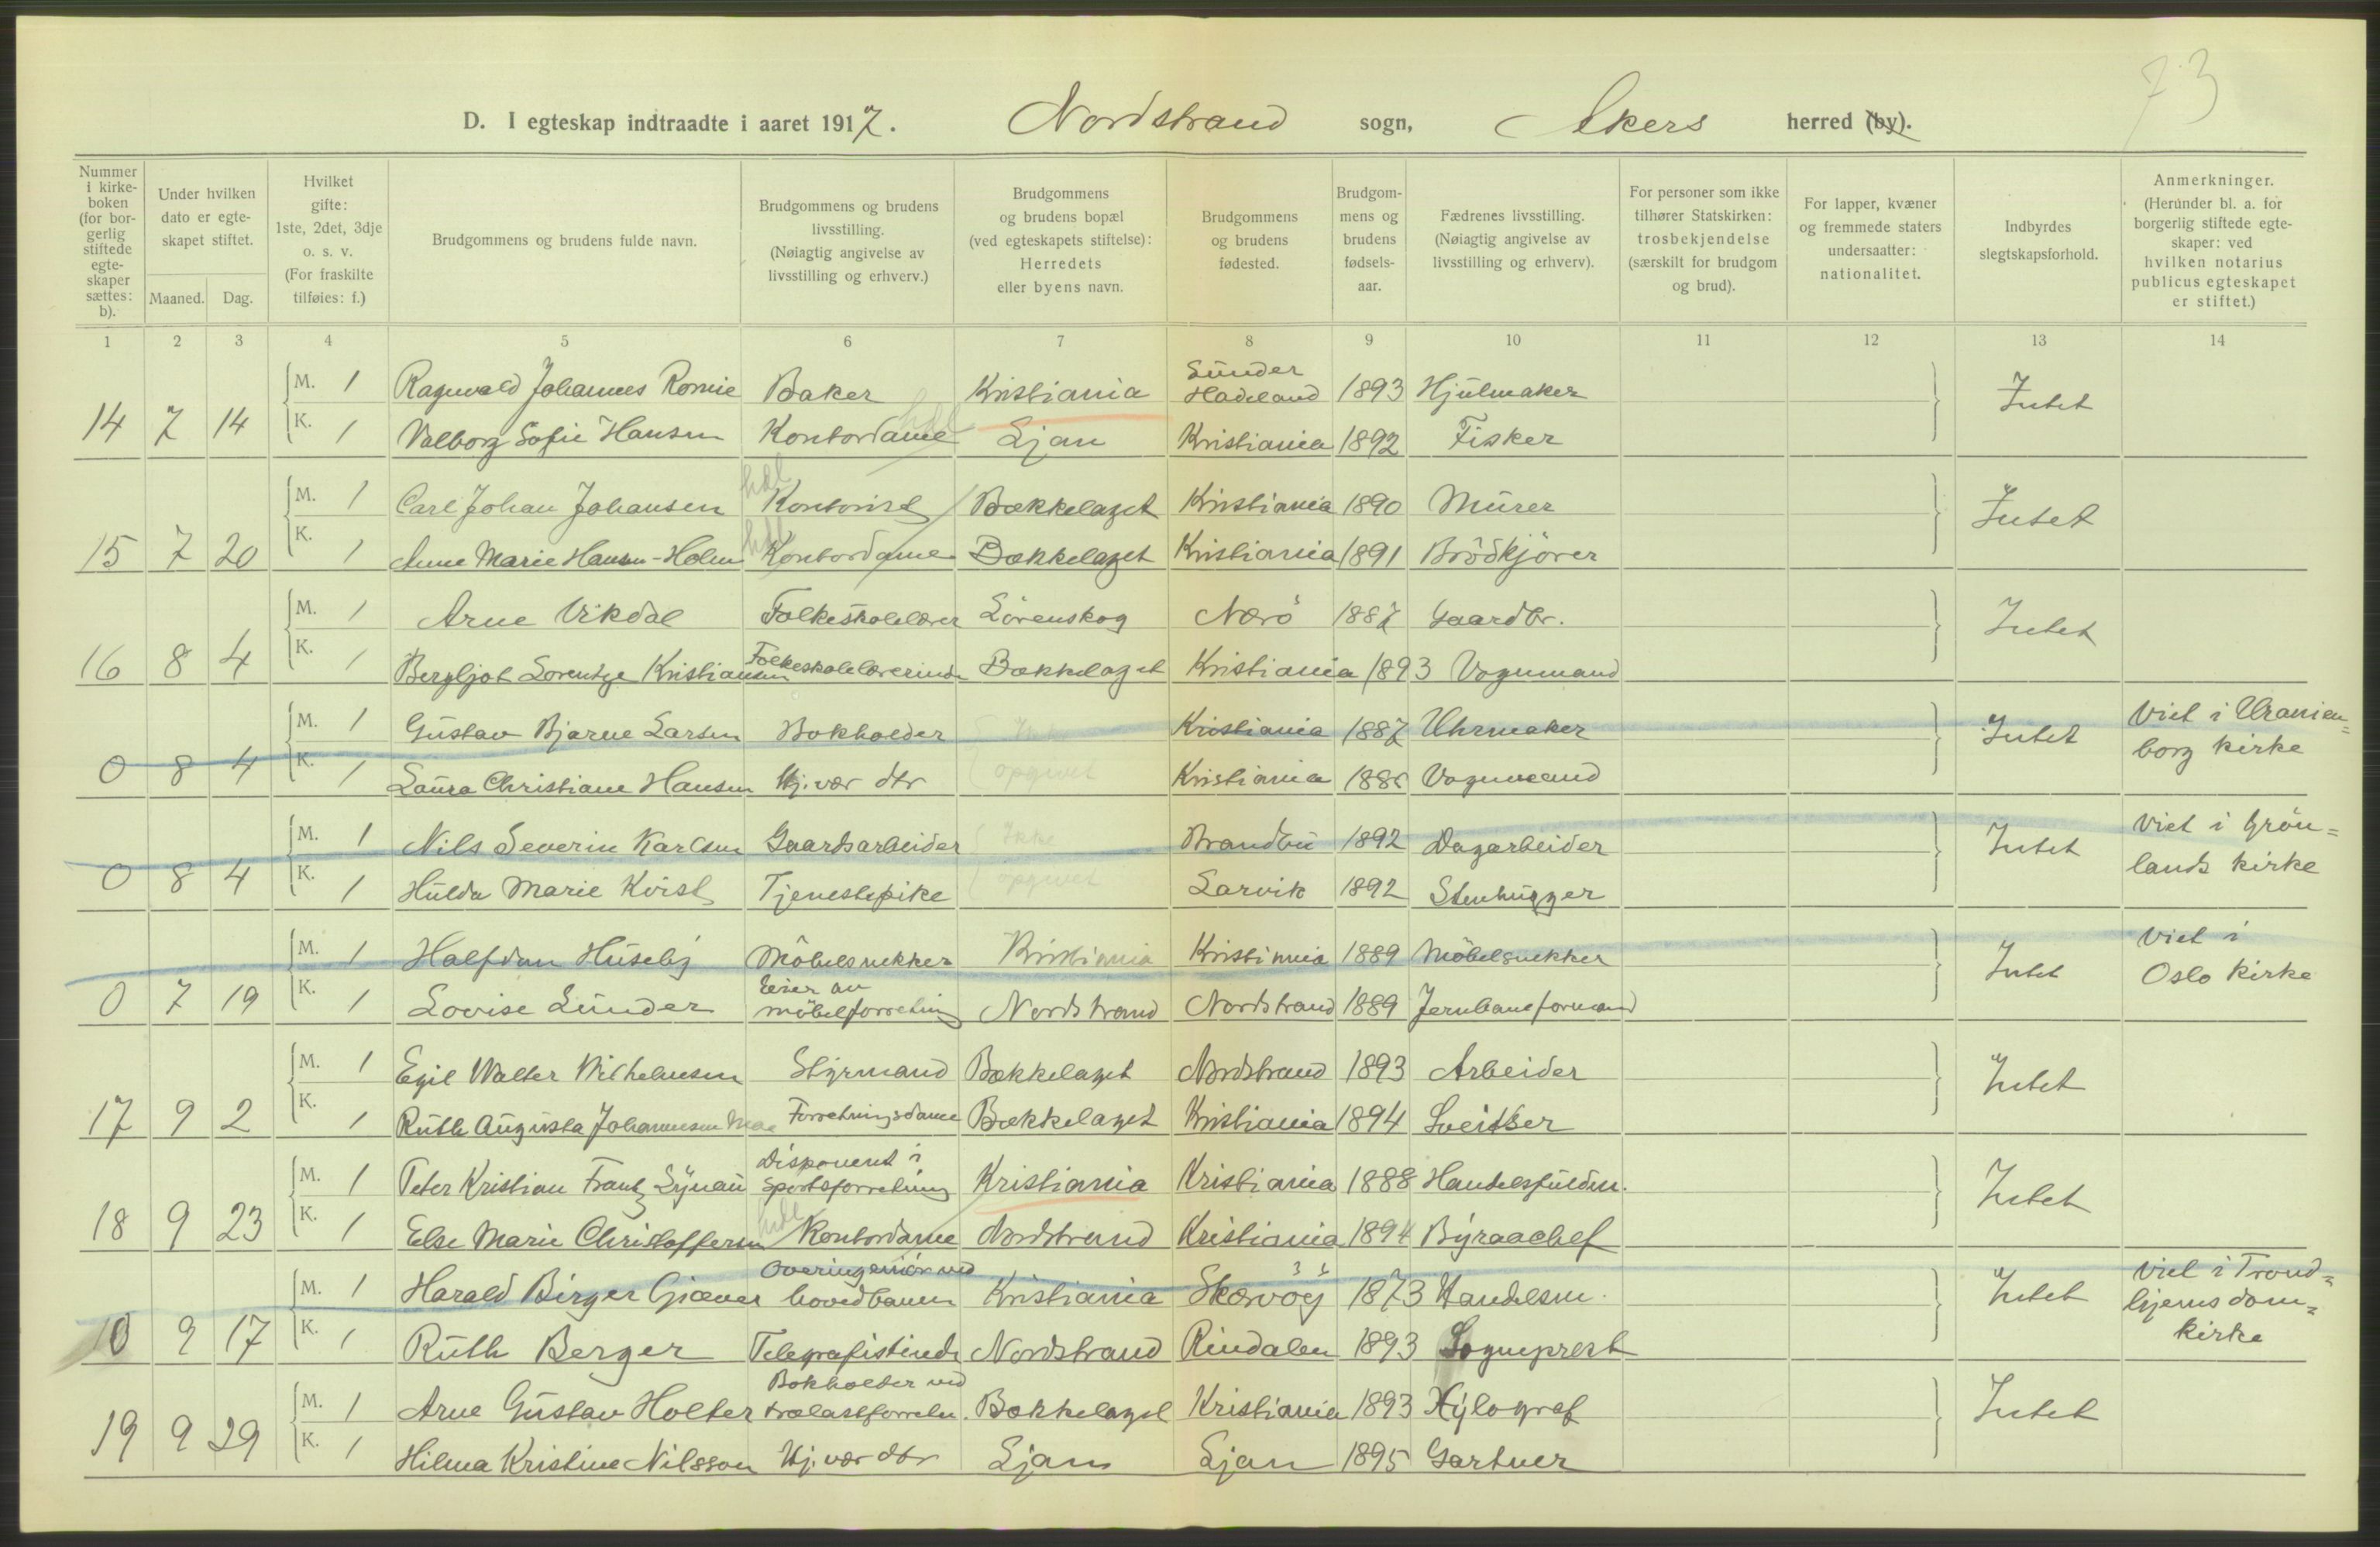 73
D. I egteskap indtraadte i aaret 1917. Nordstrand sogn, Akers herred (by).
Nummer i kirkeboken (for borgerlig stiftede egteskaper sættes: b).
Under hvilken dato er egteskapet stiftet.
Maaned. Dag.
Hvilket gifte: 1ste, 2det, 3dje o. s. v. (For fraskilte tilføies: f.)
Brudgommens og brudens fulde navn.
Brudgommens og brudens livsstilling. (Nøiagtig angivelse av livsstilling og erhverv.)
Brudgommens og brudens bopæl (ved egteskapets stiftelse): Herredets eller byens navn.
Brudgommens og brudens fødested.
Brudgommens og brudens fødselsaar.
Fædrenes livsstilling. (Nøiagtig angivelse av livsstilling og erhverv).
For personer som ikke tilhører Statskirken: trosbekjendelse (særskilt for brudgom og brud).
For lapper, kvæner og fremmede staters undersaatter: nationalitet.
Indbyrdes slegtskapsforhold.
Anmerkninger. (Herunder bl. a. for borgerlig stiftede egteskaper: ved hvilken notarius publicus egteskapet er stiftet.)
1 2 3 4 5 6 7 8 9 10 11 12 13 14
M. 1 Ragnvald Johannes Baker Kristiania Lunder Hadeland 1893 Hjulmaker Intet
14 7 14 K. 1 Valborg Sofie Hansen Kontordame hdl Ljan Kristiania 1892 Fisker
M. 1 Carl Johan Johansen hdl Kontorist Bækkelaget Kristiania 1890 Murer Intet
15 7 20 K. 1 Anne Marie Hansen-Holm hdl Kontordame Bækkelaget Kristiania 1891 Brödkjörer
M. 1 Arne Vikdal Folkeskolelærer Lörenskog Nærö 1887 Gaardbr. Intet
16 8 4 K. 1 Bergljot Lorentze Kristiansen Folkeskolelærerinde Bækkelaget Kristiania 1893 Vognmand
M. 1 Gustav Bjarne Larsen Bokholder Ikke Kristiania 1887 Uhrmaker Intet Viet i Uranien=
0 8 4 K. 1 Laura Christiane Hansen Hj. vær. dtr opgivet Kristiania Vognmand borg kirke
M. 1 Nils Severin Karlsen Gaardsarbeider Ikke Brandbu 1892 Dagarbeider Intet Viet i Grön=
0 8 4 K. 1 Hulda Marie Kvist Tjenestepike opgivet Larvik 1892 Stenhugger lands kirke
M. 1 Halfdan Huseby Möbelsnekker Kristiania Kristiania 1889 Möbelsnekker Intet Viet i
0 7 19 K. 1 Lovise Lunder Eier av möbelforretning Nordstrand Nordstrand 1889 Jernbaneformand Oslo kirke
M. 1 Egil Walter Wilhelmsen Styrmand Bækkelaget Nordstrand 1893 Arbeider Intet
17 9 2 K. 1 Ruth Augusta Johannesen Moe Forretningsdame Bækkelaget Kristiania 1894 Sveitser
M. 1 Peter Kristian Frantz Lynau Disponent i Sportsforretning Kristiania Kristiania 1888 Handelsfuldm. Intet
18 9 23 K. 1 Else Marie Christoffersen hdl Kontordame Nordstrand Kristiania 1894 Byraachef
M. 1 Harald Birger Giæver Overingeniör ved hovedbanen Kristiania Skærvöy 1873 Handelsm. Intet Viet i Trond=
10 9 17 K. 1 Ruth Berger Telegrafistinde Nordstrand Rindalen 1893 Sogneprest hjems dom=
kirke
M. 1 Arne Gustav Holter Bokholder ved trælastforretn. Bækkelaget Kristiania 1893 Xylograf Intet
19 9 29 K. 1 Hilma Kristine Nilsson Hj. vær. dtr Ljan Ljan 1895 Gartner